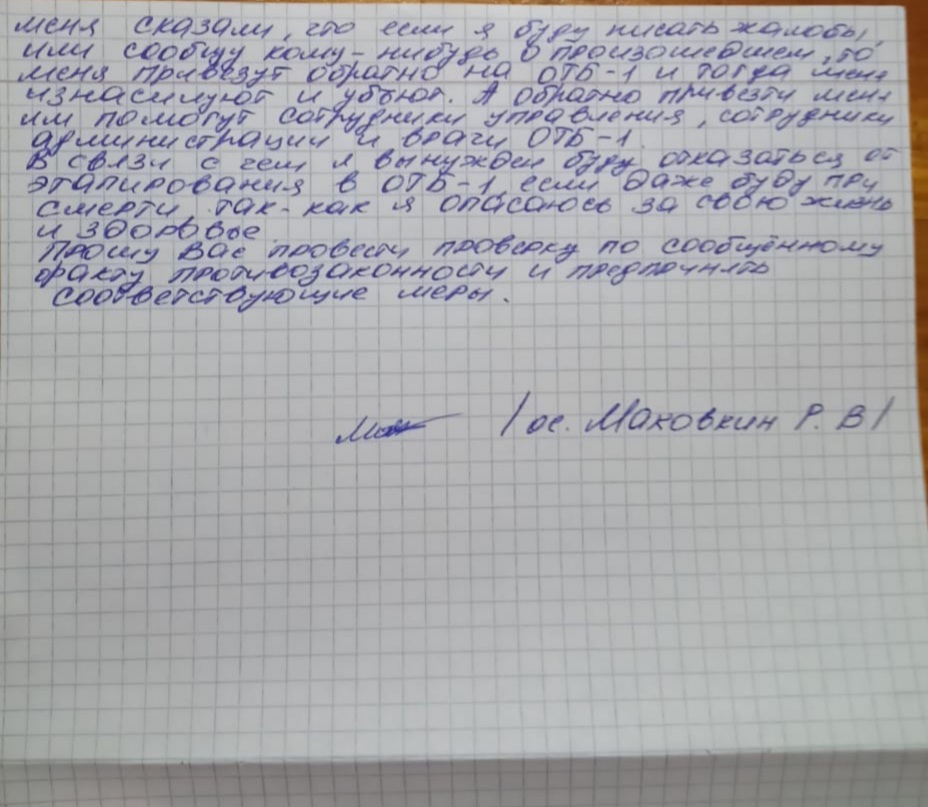 меня сказали, что если я буду писать жалобы,
или сообщу кому-нибудь о произошедшем, то
меня привезут обратно на ОТБ-1 и тогда меня
изнасилуют и убьют. А обратно привезти меня
им помогут сотрудники управления, сотрудники
администрации и врачи ОТБ-1.
В связи с чем я вынужден буду отказаться от
этапирования в ОТБ-1, если даже буду при
смерти, так-как я опасаюсь за свою жизнь
и здоровье.
Прошу Вас провести проверку по сообщённому
факту противозаконности и предпринять
соответствующие меры.
/ос. Маковкин Р. В/